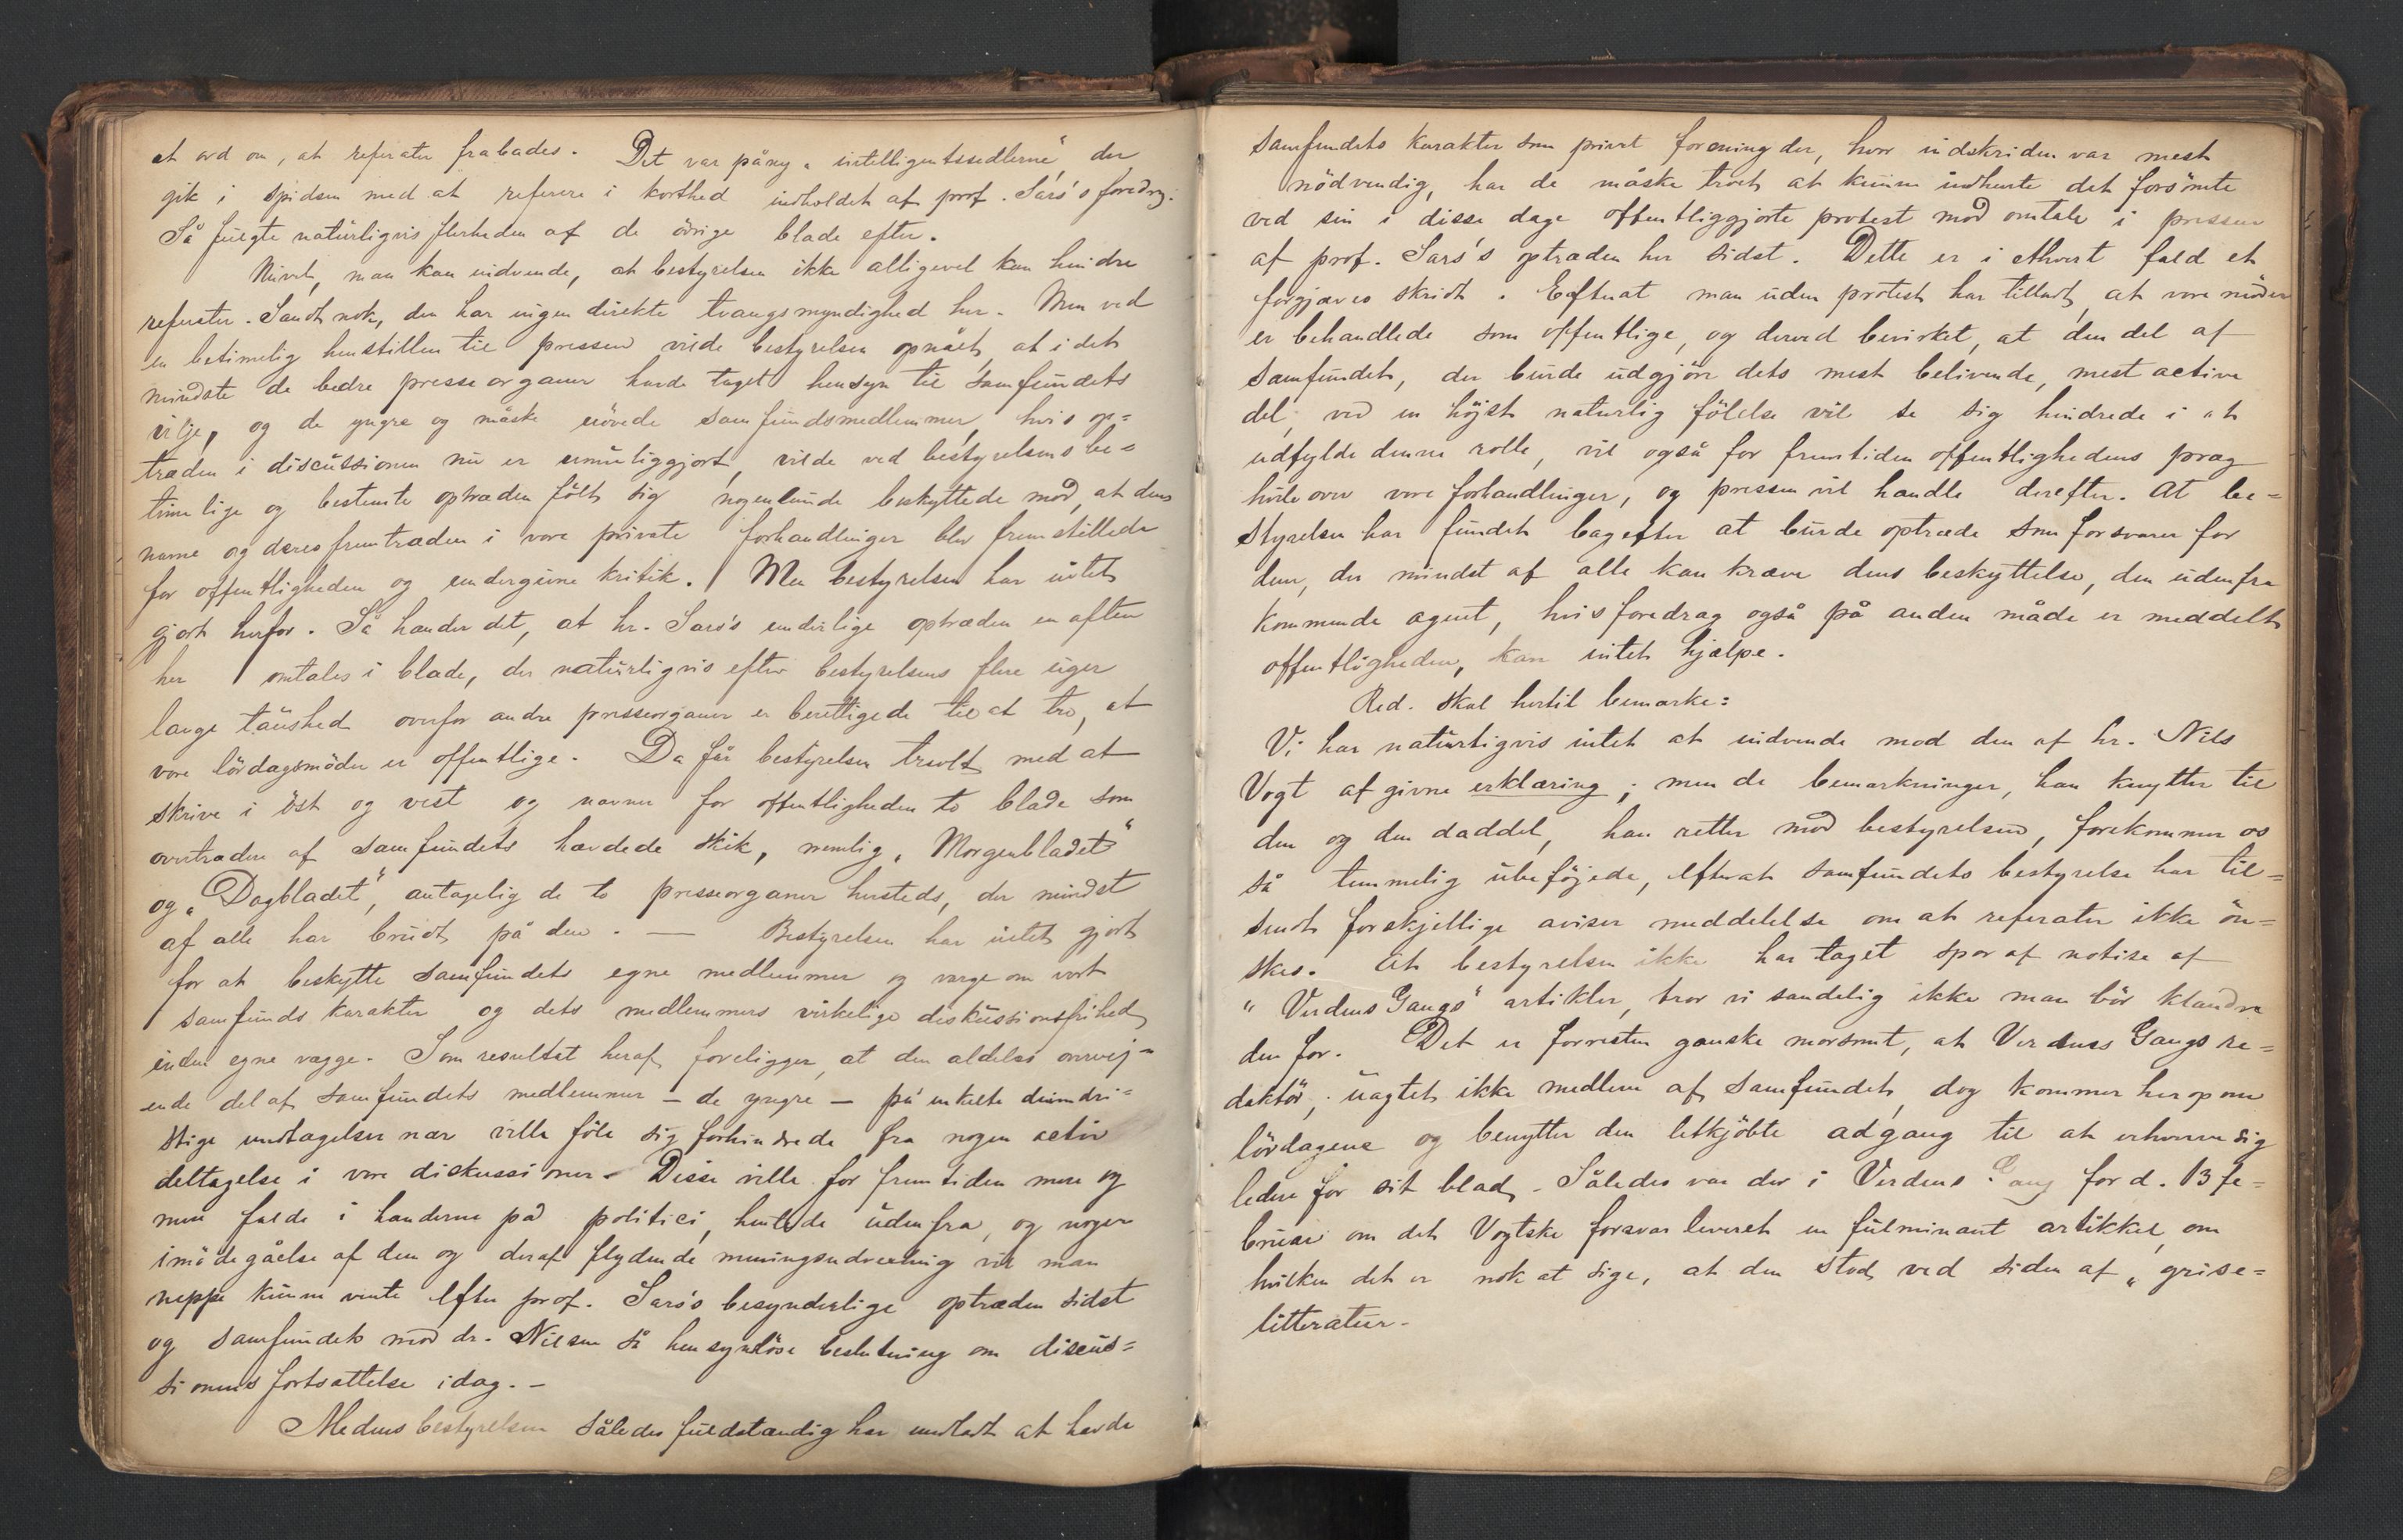 et ord om, at referater frabades. Det var påny „intelligentssedlerne“ der
gik i spidsen med at referere i korthed indholdet af prof. Sars's foredrag.
Så fulgte naturligvis flerheden af de övrige blade efter.
Nuvel, man kan indvende, at bestyrelsen ikke alligevel kan hindre
referater. Sandt nok, den har ingen direkte tvangsmyndighed her. Men ved
en betimelig henstillen til pressen vilde bestyrelsen opnået, at i det
mindste de bedre presseorganer havde taget hensyn til samfundets
vilje, og de yngre og måske uövede samfundsmedlemmer, hvis op=
træden i discussionen nu er umuliggjort, vilde ved bestyrelsens be=
timelige og bestemte optræden fölt sig nogenlunde beskyttede mod, at deres
navne og deres fremtræden i vore private forhandlinger blev fremstillede
for offentligheden og undergivne kritik. Men bestyrelsen har intet
gjort herfor. Så hænder det, at hr. Sars's underlige optræden en aften
her omtales i blade, der naturligvis efter bestyrelsens flere uger
lange taushed overfor andre presseorganer er berettigede til at tro, at
vore lördagsmöder er offentlige. Da får bestyrelsen travlt med at
skrive i öst og vest og nævner for offentligheden to blade som
overtrædere af samfundets hævdede skik, nemlig „Morgenbladet“
og „Dagbladet“, antagelig de to presseorganer hersteds, der mindst
af alle har brudt på den. — Bestyrelsen har intet gjort
for at beskytte samfundets egne medlemmer og værge om vort
samfunds karakter og dets medlemmers virkelige diskussionsfrihed
inden egne vægge. Som resultat heraf foreligger, at den aldeles overvej=
ende del af samfundets medlemmer — de yngre — på enkelte dumdri=
stige undtagelser nær ville föle sig forhindrede fra nogen activ
deltagelse i vore diskussioner. Disse ville for fremtiden mere og
mere falde i hænderne på politici, hentede udenfra, og nogen
imödegåelse af dem og deraf flydende meningsudvexling vil man
neppe kunne vente efter prof. Sars's besynderlige optræden sidst
og samfundets mod dr. Nielsen så hensynslöse beslutning om discus=
sionens fortsættelse idag. —
Medens bestyrelsen således fuldstændig har undladt at hævde
samfundets karakter som privat forening der, hvor indskriden var mest
nödvendig, har de måske troet at kunne indhente det forsömte
ved sin i disse dage offentliggjorte protest mod omtale i pressen
af prof. Sars's optræden her sidst. Dette er i ethvert fald et
forgjæves skridt. Efterat man uden protest har tilladt, at vore möder
er behandlede som offentlige, og derved bevirket, at den del af
samfundet, der burde udgjöre dets mest belivende, mest active
del, ved en höjst naturlig fölelse vil se sig hindrede i at
udfylde denne rolle, vil også for fremtiden offentlighedens præg
hvile over vore forhandlinger, og pressen vil handle derefter. At be=
styrelsen har fundet bagefter at burde optræde som forsvarer for
den, der mindst af alle kan kræve dens beskyttelse, den udenfra
kommende agent, hvis foredrag også på anden måde er meddelt
offentligheden, kan intet hjælpe.
Red. skal hertil bemærke:
Vi har naturligvis intet at indvende mod den af hr. Nils
Vogt afgivne erklæring; men de bemærkninger, han knytter til
den og den daddel, han retter mod bestyrelsen, forekommer os
så temmelig ubeföjede, efterat samfundets bestyrelse har til=
sendt forskjellige aviser meddelelse om at referater ikke ön=
skes. At bestyrelsen ikke har taget spor af notise af
„Verdens Gangs“ artikler, tror vi sandelig ikke man bör klandre
den for. Det er forresten ganske morsomt, at Verdens Gangs re=
daktör, uagtet ikke medlem af samfundet, dog kommer herop om
lördagene og benytter den letkjöbte adgang til at erhverve sig
ledere for sit blad. Således var der i Verdens Gang for d. 13 fe=
bruar om det Vogtske forsvar leveret en fulminant artikkel, om
hvilken det er nok at sige, at den stod ved siden af „grise=
litteratur.